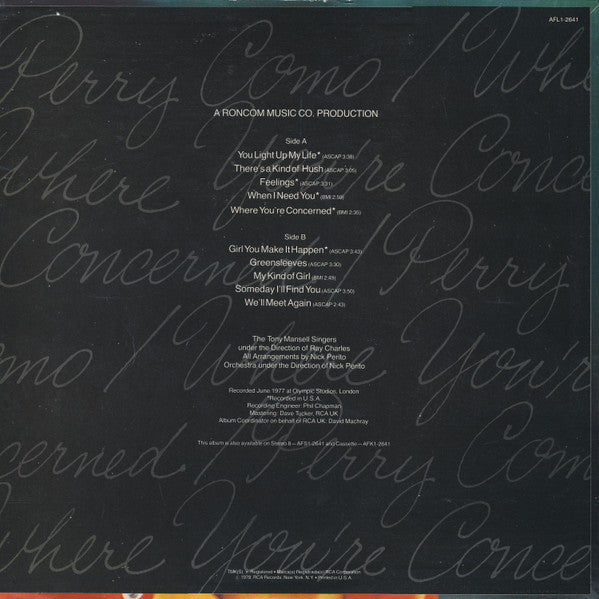 AFL1-2641
Perry Como / Whe
Where You're Conce
Concerned / Perry
Como / Where You're
cerned / Perry Como
Where You're Conce
A RONCOM MUSIC CO. PRODUCTION
Side A
You Light Up My Life* (ASCAP 3:38)
There's a Kind of Hush (ASCAP 3:05)
Feelings* (ASCAP 3:31)
When I Need You* (BMI 2:59)
Where You're Concerned* (BMI 2:35)
Side B
Girl You Make It Happen* (ASCAP 3:43)
Greensleeves (ASCAP 3:30)
My Kind of Girl (BMI 2:49)
Someday I'll Find You (ASCAP 3:50)
We'll Meet Again (ASCAP 2:43)
The Tony Mansell Singers
under the Direction of Ray Charles
All Arrangements by Nick Perito
Orchestra under the Direction of Nick Perito
Recorded June 1977 at Olympic Studios, London
*Recorded in U.S.A.
Recording Engineer: Phil Chapman
Mastering: Dave Tucker, RCA UK
Album Coordinator on behalf of RCA UK: David Machray
This album is also available on Stereo 8—AFS1-2641 and Cassette—AFK1-2641
TMK(S) ® Registered • Marca(s) Registrada(s) RCA Corporation
1978, RCA Records, New York, N.Y. • Printed in U.S.A.